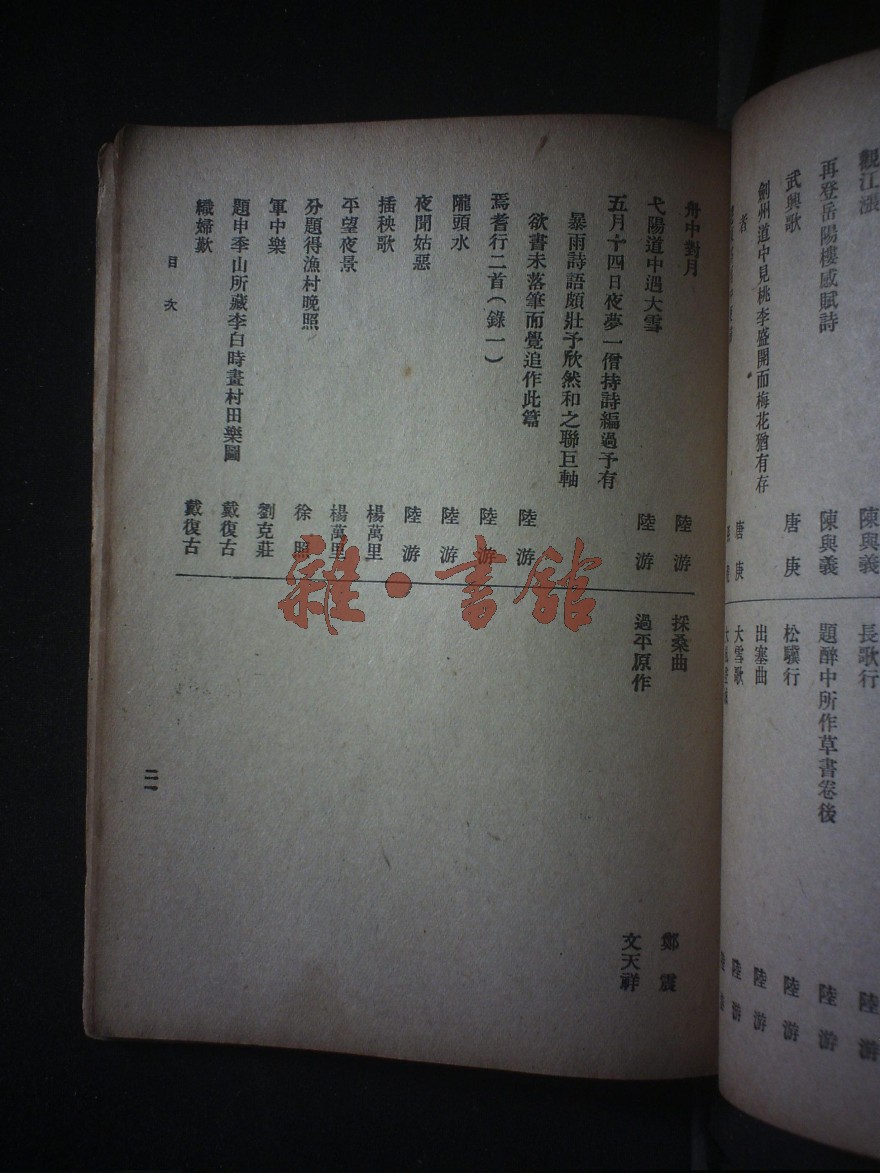 觀江漲 陳與義
再登岳陽樓感賦詩 陳與義
武興歌 唐庚
劍州道中見桃李盛開而梅花猶有存
者 唐庚
長歌行 陸游
題醉中所作草書卷後 陸游
松驥行 陸游
出塞曲 陸游
大雪歌 陸游
舟中對月 陸游
弋陽道中遇大雪 陸游
五月十四日夜夢一僧持詩編過予有
暴雨詩語頗壯予欣然和之聯巨軸
欲書未落筆而覺追作此篇 陸游
焉耆行二首(錄一) 陸游
隴頭水 陸游
夜聞姑惡 陸游
插秧歌 楊萬里
平望夜景 楊萬里
分題得漁村晚照 徐照
軍中樂 劉克莊
題申季山所藏李白時畫村田樂圖 戴復古
織婦歎 戴復古
採桑曲 鄭震
過平原作 文天祥
目次
二一
雜·書館